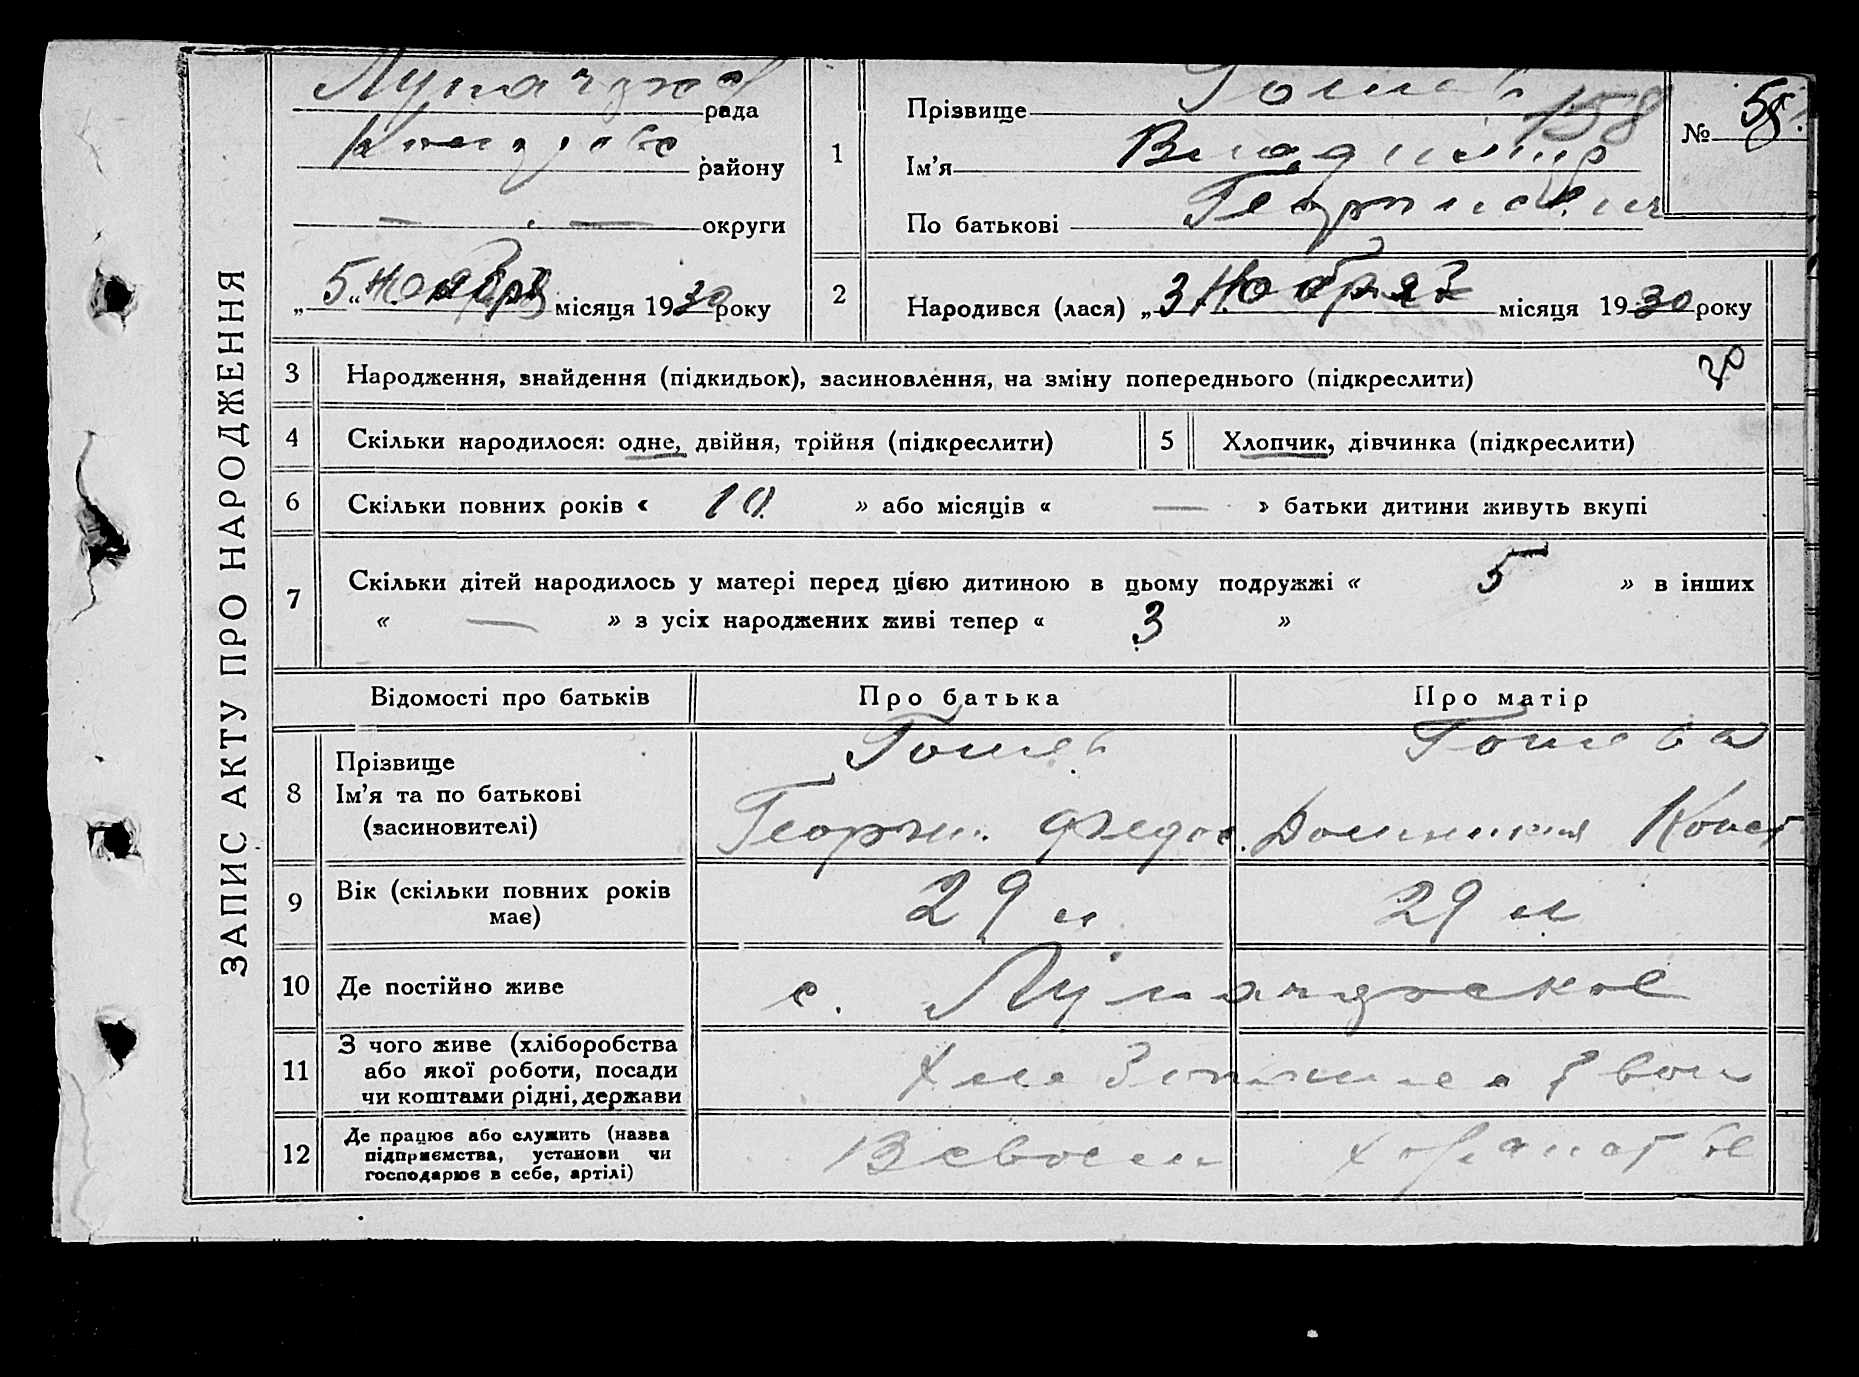 ЗАПИС АКТУ ПРО НАРОДЖЕННЯ
рада
району
— . — округи
„5“ Ноября місяця 1930 року
1
Прізвище Гошев
158
Ім'я Владимир
По батькові Георгиевич
№ 58
2
Народився (лася) „3 Ноября місяця 1930 року
30
3 Народження, знайдення (підкидьок), засиновлення, на зміну попереднього (підкреслити)
4 Скільки народилося: одне, двійня, трійня (підкреслити)
5 Хлопчик, дівчинка (підкреслити)
6 Скільки повних років « 10 » або місяців « — » батьки дитини живуть вкупі
7 Скільки дітей народилось у матері перед цією дитиною в цьому подружжі « 5 » в інших
« — » з усіх народжених живі тепер « 3 »
Відомості про батьків
Про батька
Про матір
8 Прізвище
Ім'я та по батькові
(засиновителі)
Гошев
Георгий Федос.
Гошева
Домникия Конст
9 Вік (скільки повних років
має)
29 л
29 л
10 Де постійно живе
с.
11 З чого живе (хліборобства
або якої роботи, посади
чи коштами рідні, держави
12 Де працює або служить (назва
підприємства, установи чи
господарює в себе, артілі)
В своем хозяйстве